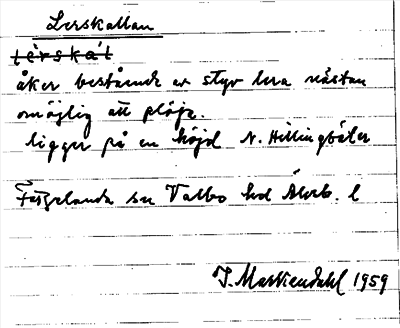 Lerskallan
lèrskáɫ
åker bestående av styv lera nästan
omöjlig att plöja.
ligger på en höjd N. Hillingsäter
Färgelanda sn Valbo hd Älvsb. l
J. Markendahl 1959